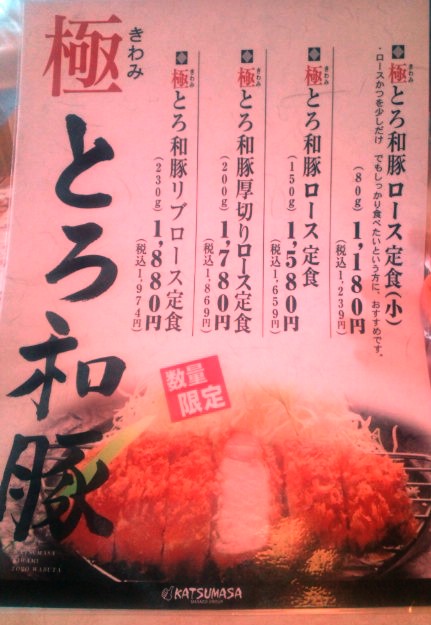 極
きわみ
とろ和豚
極とろ和豚 ロース定食(小)
きわみ
・ロースかつを少しだけ でもしっかり食べたいという方に、おすすめです。
(80g) 1,180円
(税込1,239円)
極とろ和豚 ロース定食
きわみ
(150g) 1,580円
(税込1,659円)
極とろ和豚厚切りロース定食
きわみ
(200g) 1,780円
(税込1,869円)
極とろ和豚リブロース定食
きわみ
(230g) 1,880円
(税込1,974円)
数量
限定
KATSUMASA
KIWAMI
TORO WABUTA
KATSUMASA